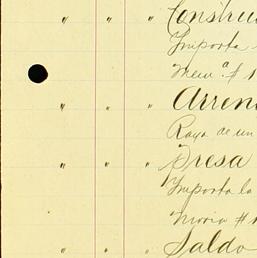 " " " Construc
Importa
Mem.ª # 1
" " " Arren
Raya de un
" " " Presa
Importa la
Noria # 1
" " " Saldo